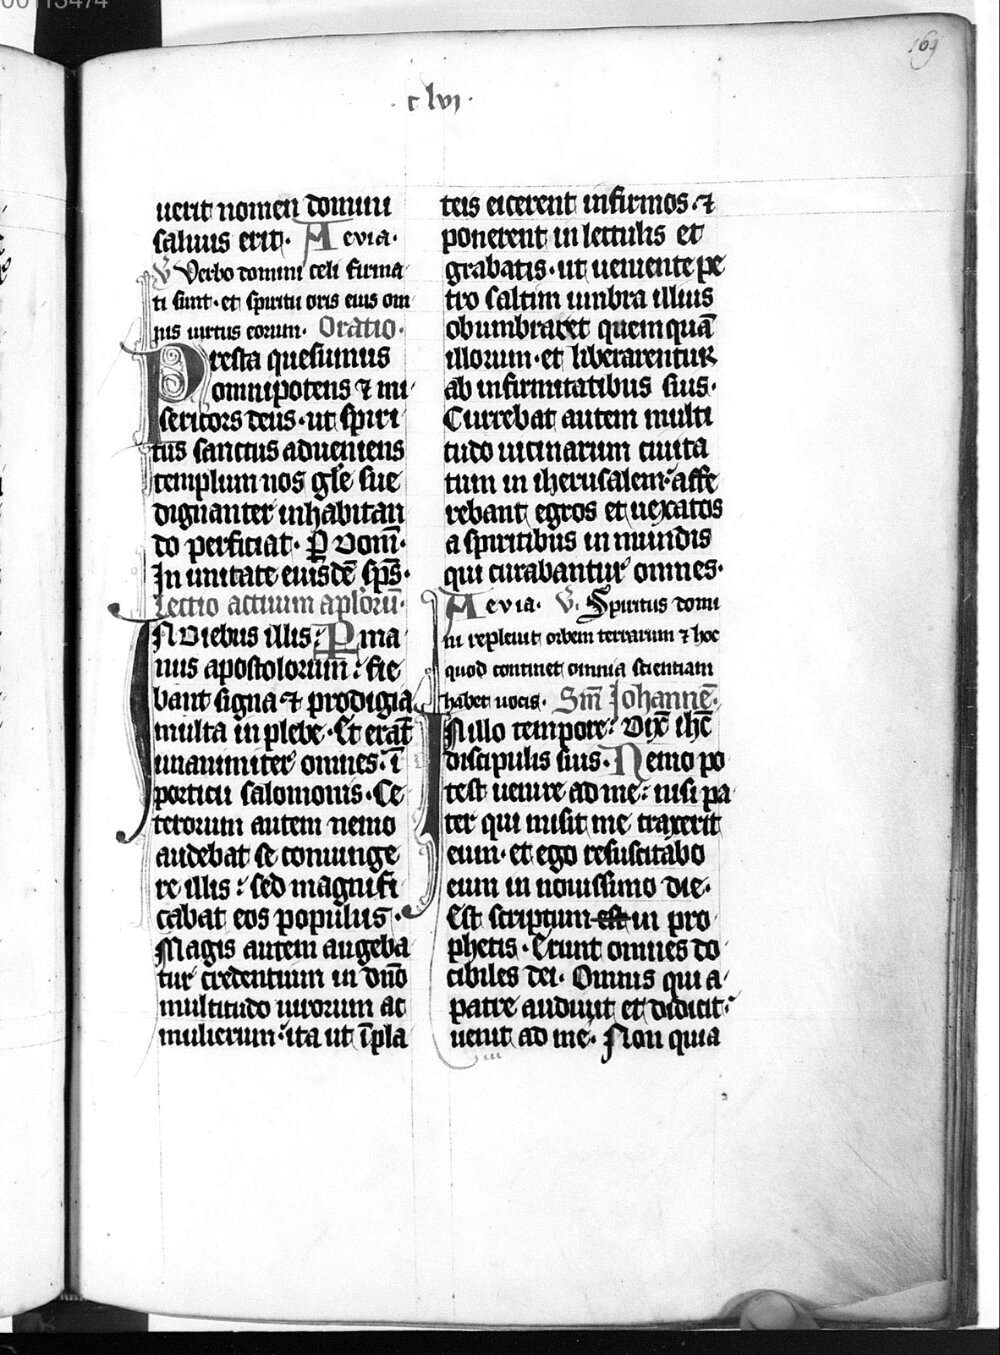 00113474
169
· clvi ·
uerit nomen domini
saluus erit· Aevia·
V Verbo domini celi firma
ti sunt· et spiritu oris eius om
nis uirtus eorum· Oratio·
Presta quesumus
omnipotens ⁊ mi
sericors deus· ut spiri
tus sanctus adueniens
templum nos gl̄e sue
dignanter inhabitan
do perficiat· P Dom̄·
In unitate eiusdē sp̄s·
Lectio actuum apl'orū·
IN Diebus illis: P ma
nus apostolorum: fie
bant signa ⁊ prodigia
multa in plebe· Et erāt
unanimiter omnes· ī
porticu salomonis· Ce
terorum autem nemo
audebat se coniunge
re illis: sed magnifi
cabat eos populus·
Magis autem augeba
tur credentium in dn̄o
multitudo uirorum ac
mulierum· ita ut ī pla
teis eicerent infirmos· ⁊
ponerent in lectulis et
grabatis· ut ueniente pe
tro saltim umbra illius
obumbraret quemquā
illorum· et liberarentur
ab infirmitatibus suis·
Currebat autem multi
tudo uicinarum ciuita
tum in iherusalem· affe
rebant egros et uexatos
a spiritibus inmundis
qui curabantur omnes·
Aevia· V· Spiritus domi
ni repleuit orbem terrarum ⁊ hoc
quod continet omnia scientiam
habet uocis· Sm̄ Johannē·
IN illo tempore: Dix̄ ih̄c
discipulis suis· Nemo po
test uenire ad me: nisi pa
ter qui misit me traxerit
eum· et ego resuscitabo
eum in nouissimo die·
Est scriptum est in pro
phetis· Erunt omnes do
cibiles dei· Omnis qui a
patre audiuit et didicit·
uenit ad me· Non quia